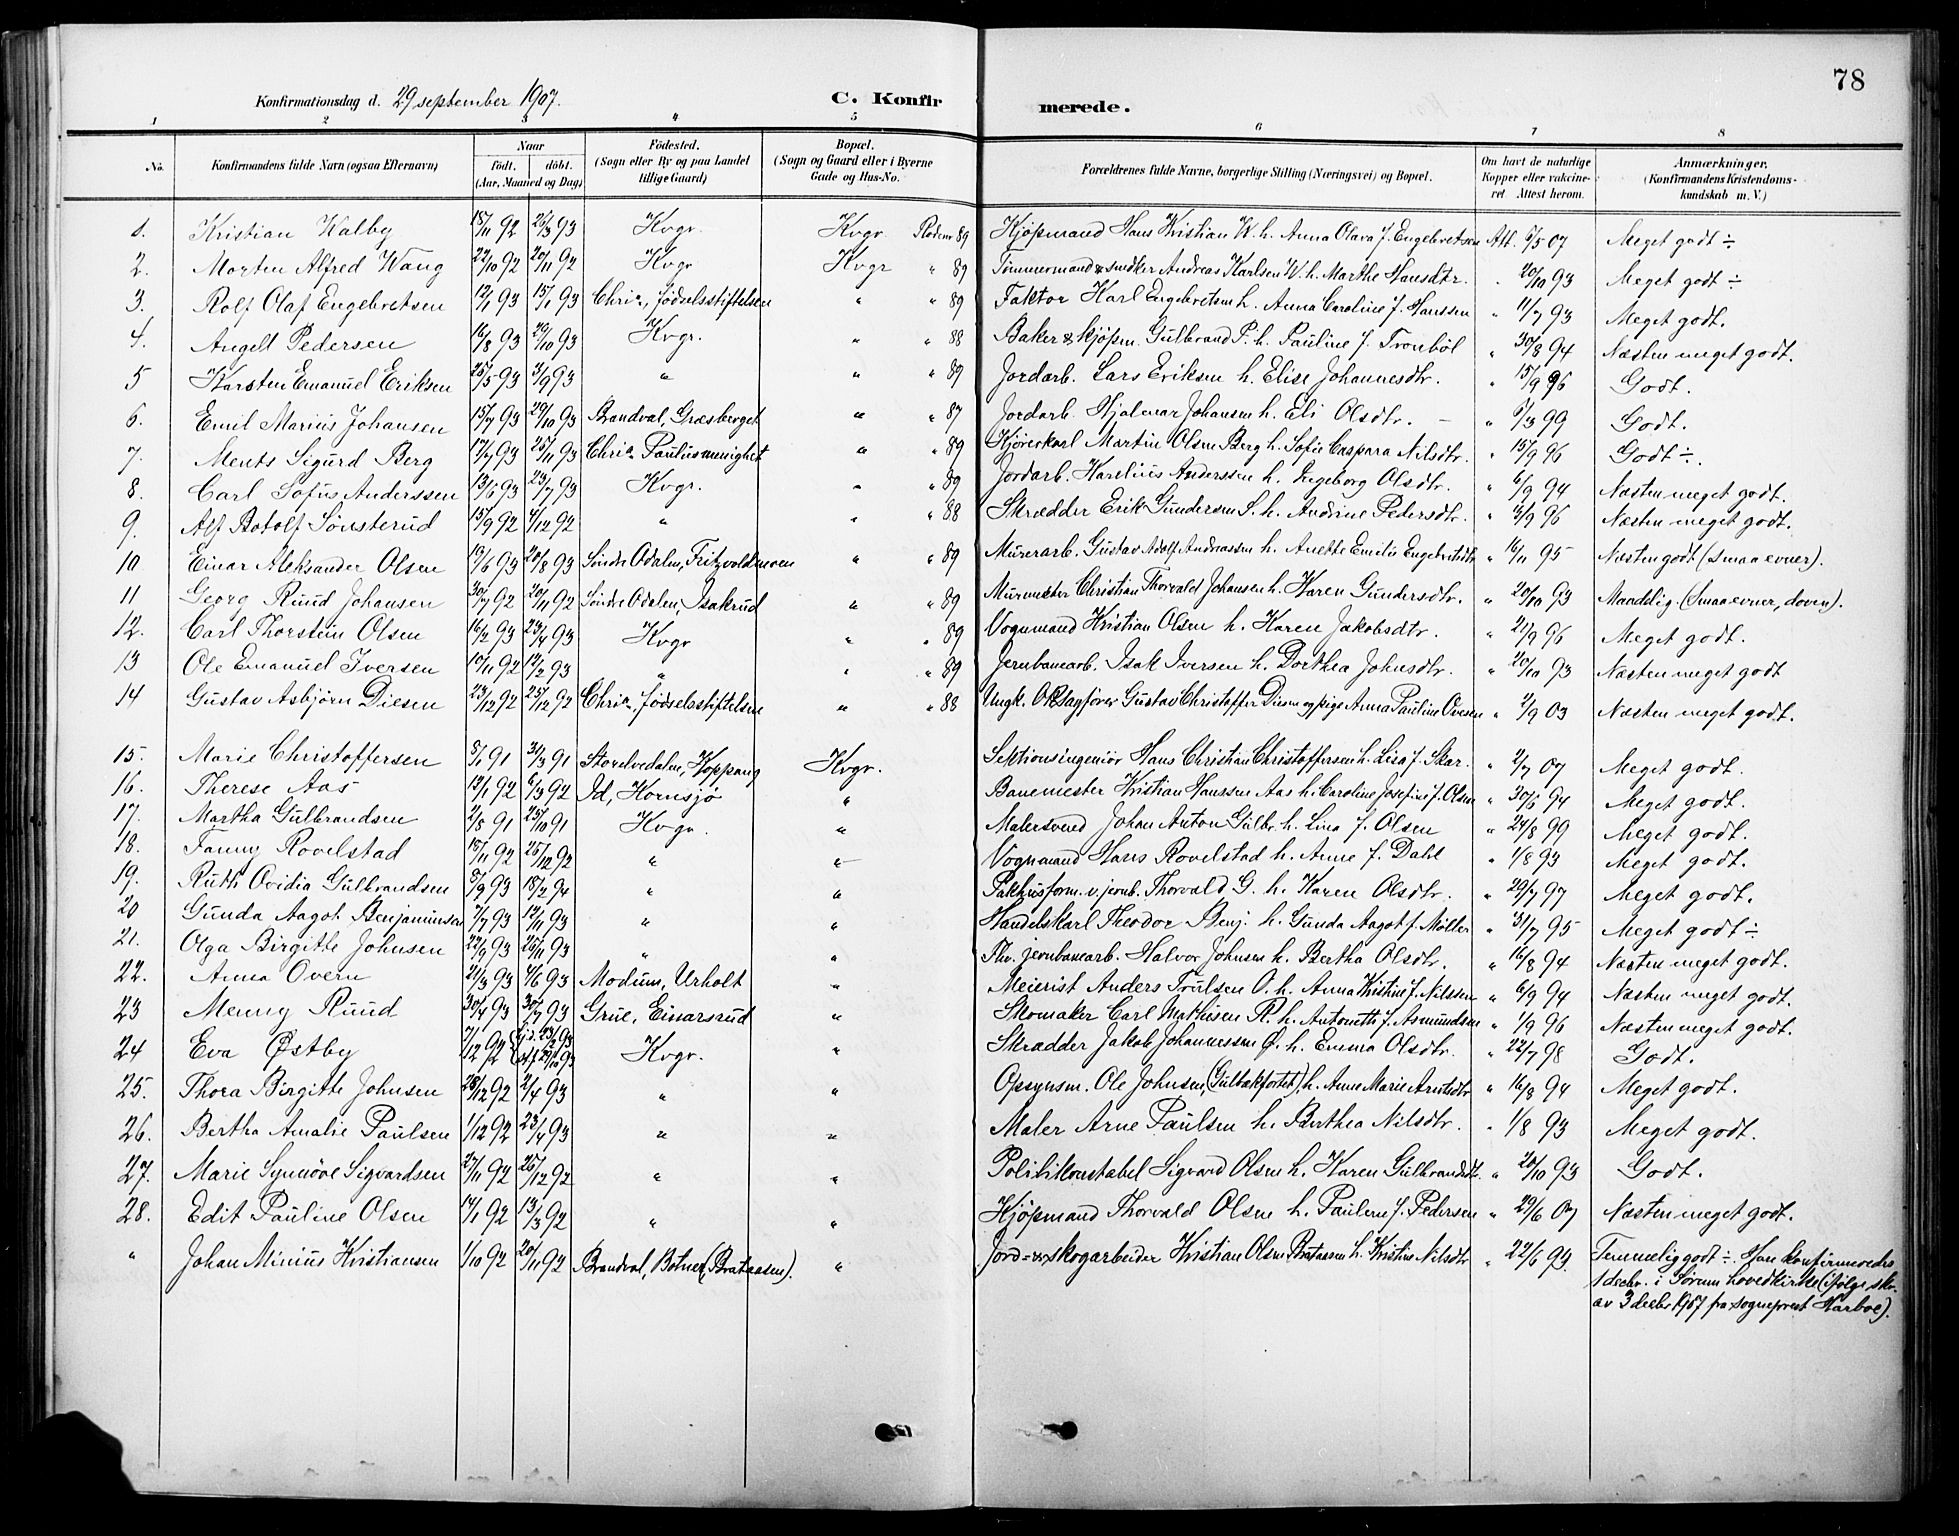 78
Konfirmationsdag d. 29 september 1907. C. Konfirmerede.
1 2 3 4 5 6 7 8
No. Konfirmandens fulde Navn (ogsaa Efternavn) Naar født. døbt. (Aar, Maaned og Dag) Födested. (Sogn eller By og paa Landet tillige Gaard) Bopæl. (Sogn og Gaard eller i Byerne Gade og Hus-No. Forældrenes fulde Navne, borgerlige Stilling (Næringsvei) og Bopæl. Om havt de naturlige Kopper eller vakcineret Attest herom. Anmærkninger. (Konfirmandens Kristendomskundskab m. V.)
1. Kristian Walby 15/11 92 26/3 93 Kvgr. Kvgr. Rodenr 89 Kjöpmand Hans Kristian W. h. Anna Olava f. Engebretsen Att. 7/5 07 Meget godt ÷
2. Morten Alfred Wang 22/10 92 20/11 92 Kvgr Kvgr " 89 Tömmermand & snedker Andreas Karlsen W. h. Marthe Hansdtr. " 20/10 93 Meget godt ÷
3. Rolf Olaf Engebretsen 12/1 93 15/1 93 Chria., födselsstiftelsen " " 89 Faktor Karl Engebretsen h. Anna Caroline f. Hanssen " 11/7 93 Meget godt.
4. Angell Pedersen 16/8 93 29/10 93 Kvgr. " " 88 Baker & kjöpm. Gulbrand P. h. Pauline f. Tronböl " 30/8 94 Næsten meget godt.
5 Karsten Emanuel Eriksen 25/5 93 3/9 93 " " " 89 Jordarb. Lars Eriksen h. Elise Johannesdtr. " 15/9 96 Godt.
6. Emil Marius Johansen 15/7 93 29/10 93 Brandval, Græsberget " " 87 Jordarb. Hjalmar Johansen h. Eli Olsdtr. – " /3 99 Godt.
7. Ments Sigurd Berg 17/7 93 25/11 93 Chria. Paulusmenighet " " 89 Kjörekarl Martin Olsen Berg h. Sofie Caspara Nilsdtr. " 15/9 96 Godt ÷.
8. Carl Sofus Anderssen 13/5 93 23/7 93 Kvgr. " " 89 Jordarb. Karelius Anderssen h. Ingeborg Olsdtr. " 6/9 94 Næsten meget godt.
9. Alf Botolf Sönsterud 15/9 92 4/12 92 " " " 88 Skrædder Erik Gundersen S. h. Andrine Pedersdtr. " 3/9 96 Næsten meget godt.
10 Einar Aleksander Olsen 19/6 93 20/8 93 Söndre Odalen, Fritzvoldmoen " " 89 Murerarb. Gustav Adolf Andreassen h. Anette Emilie Engebretsdtr " 16/11 95 Næsten godt (smaa evner).
11 Georg Ruud Johansen 30/7 92 20/11 92 Söndre Odalen, Isakrud " " 89 Murmester Christian Thorvald Johansen h. Karen Gundersdtr. " 20/10 93 Maadelig. (Smaa evner, doven).
12. Carl Thorstein Olsen 16/2 93 23/4 93 Kvgr " " 89 Vognmand Kristian Olsen h. Karen Jakobsdtr. " 21/9 96 Meget godt.
13 Ole Emanuel Iversen 10/11 92 12/2 93 " " " 89 Jernbanearb. Isak Iversen h. Dorthea Johnsdtr. " 20/10 93 Næsten meget godt
14 Gustav Asbjörn Diesen 23/12 92 25/12 92 Chria., födselsstiftelsen " " 88 Ungk. O.R.sagförer Gustav Christoffer Diesen og pige Anna Pauline Ovesen " 2/9 03 Næsten meget godt.
15. Marie Christoffersen 8/1 91 31/3 91 Storelvedalen, Koppang Kvgr. Sektionsingeniör Hans Christian Christoffersen h. Lisa f. Skar. " 2/7 07 Meget godt.
16. Therese Aas 13/1 92 6/3 92 Id, Kornsjö " Banemester Kristian Hanssen Aas h. Caroline Josefine f. Olsen " 30/5 94 Meget godt.
17. Martha Gulbrandsen 2/8 91 25/10 91 Kvgr. " Malersvend Johan Anton Gulbr. h. Lina f. Olsen " 24/8 99 Meget godt.
18. Fanny Rovelstad 15/11 92 26/12 92 " " Vognmand Hans Rovelstad h. Anne f. Dahl " 1/8 93 Meget godt.
19. Ruth Ovidia Gulbrandsen 8/9 93 18/2 94 " " Pakhusform. v. jernb. Thorvald G. h. Karen Olsdtr. " 29/7 97 Meget godt.
20 Gunda Aagot Benjaminsen 7/7 93 12/11 93 " " Handelskarl Theodor Benj. h. Gunda Aagot f. Möller " 31/7 95 Meget godt ÷
21. Olga Birgitte Johnsen 22/9 93 26/11 93 " " Fhv. jernbanearb. Halvor Johnsen h. Bertha Olsdtr. " 16/8 94 Næsten meget godt.
22. Anna Overn 21/3 93 4/6 93 Modum, Urholt " Meierist Anders Trulsen O. h. Anna Kristine f. Nilssen " 6/9 94 Næsten meget godt.
23 Menny Ruud 30/4 93 30/7 93 Grue, Einarsrud " Skomaker Carl Mathisen R. h. Antonette f. Asmundsen " 1/9 96 Næsten meget godt.
24 Eva Østby 7/12 92 Kvgr. " Skrædder Jakob Johannessen Ø. h. Emma Olsdtr. " 22/7 98 Godt.
25. Thora Birgitte Johnsen 28/12 92 2/4 93 " " Opsynsm. Ole Johnsen, (Gulbakfortet), h. Anne Marie Arntsdtr " 16/8 94 Meget godt.
26. Bertha Amalie Paulsen 1/12 92 23/4 93 " " Maler Arne Paulsen h. Berthea Nilsdtr. " 1/8 93 Meget godt.
27. Marie Synnöve Sigvardsen 27/11 92 26/12 92 " " Politikonstabel Sigvard Olsen h. Karen Gulbrandsdtr. " 20/10 93 Godt.
28. Edit Pauline Olsen 14/1 92 13/3 92 " " Kjöpmand Thorvald Olsen h. Pauline f. Pedersen " 29/6 07 Næsten meget godt.
" Johan Minius Kristiansen 1/10 92 20/11 92 Brandval, Botner, (Brataasen). " Jord- & skogarbeider Kristian Olsen Brataasen h. Kristine Nilsdtr " 22/6 93. Temmelig godt ÷. Han konfirmeredes
1 decbr. i Sörum hovedkirke (ifölge skr.
av 3 decbr 1907 fra sogneprest Harboe).